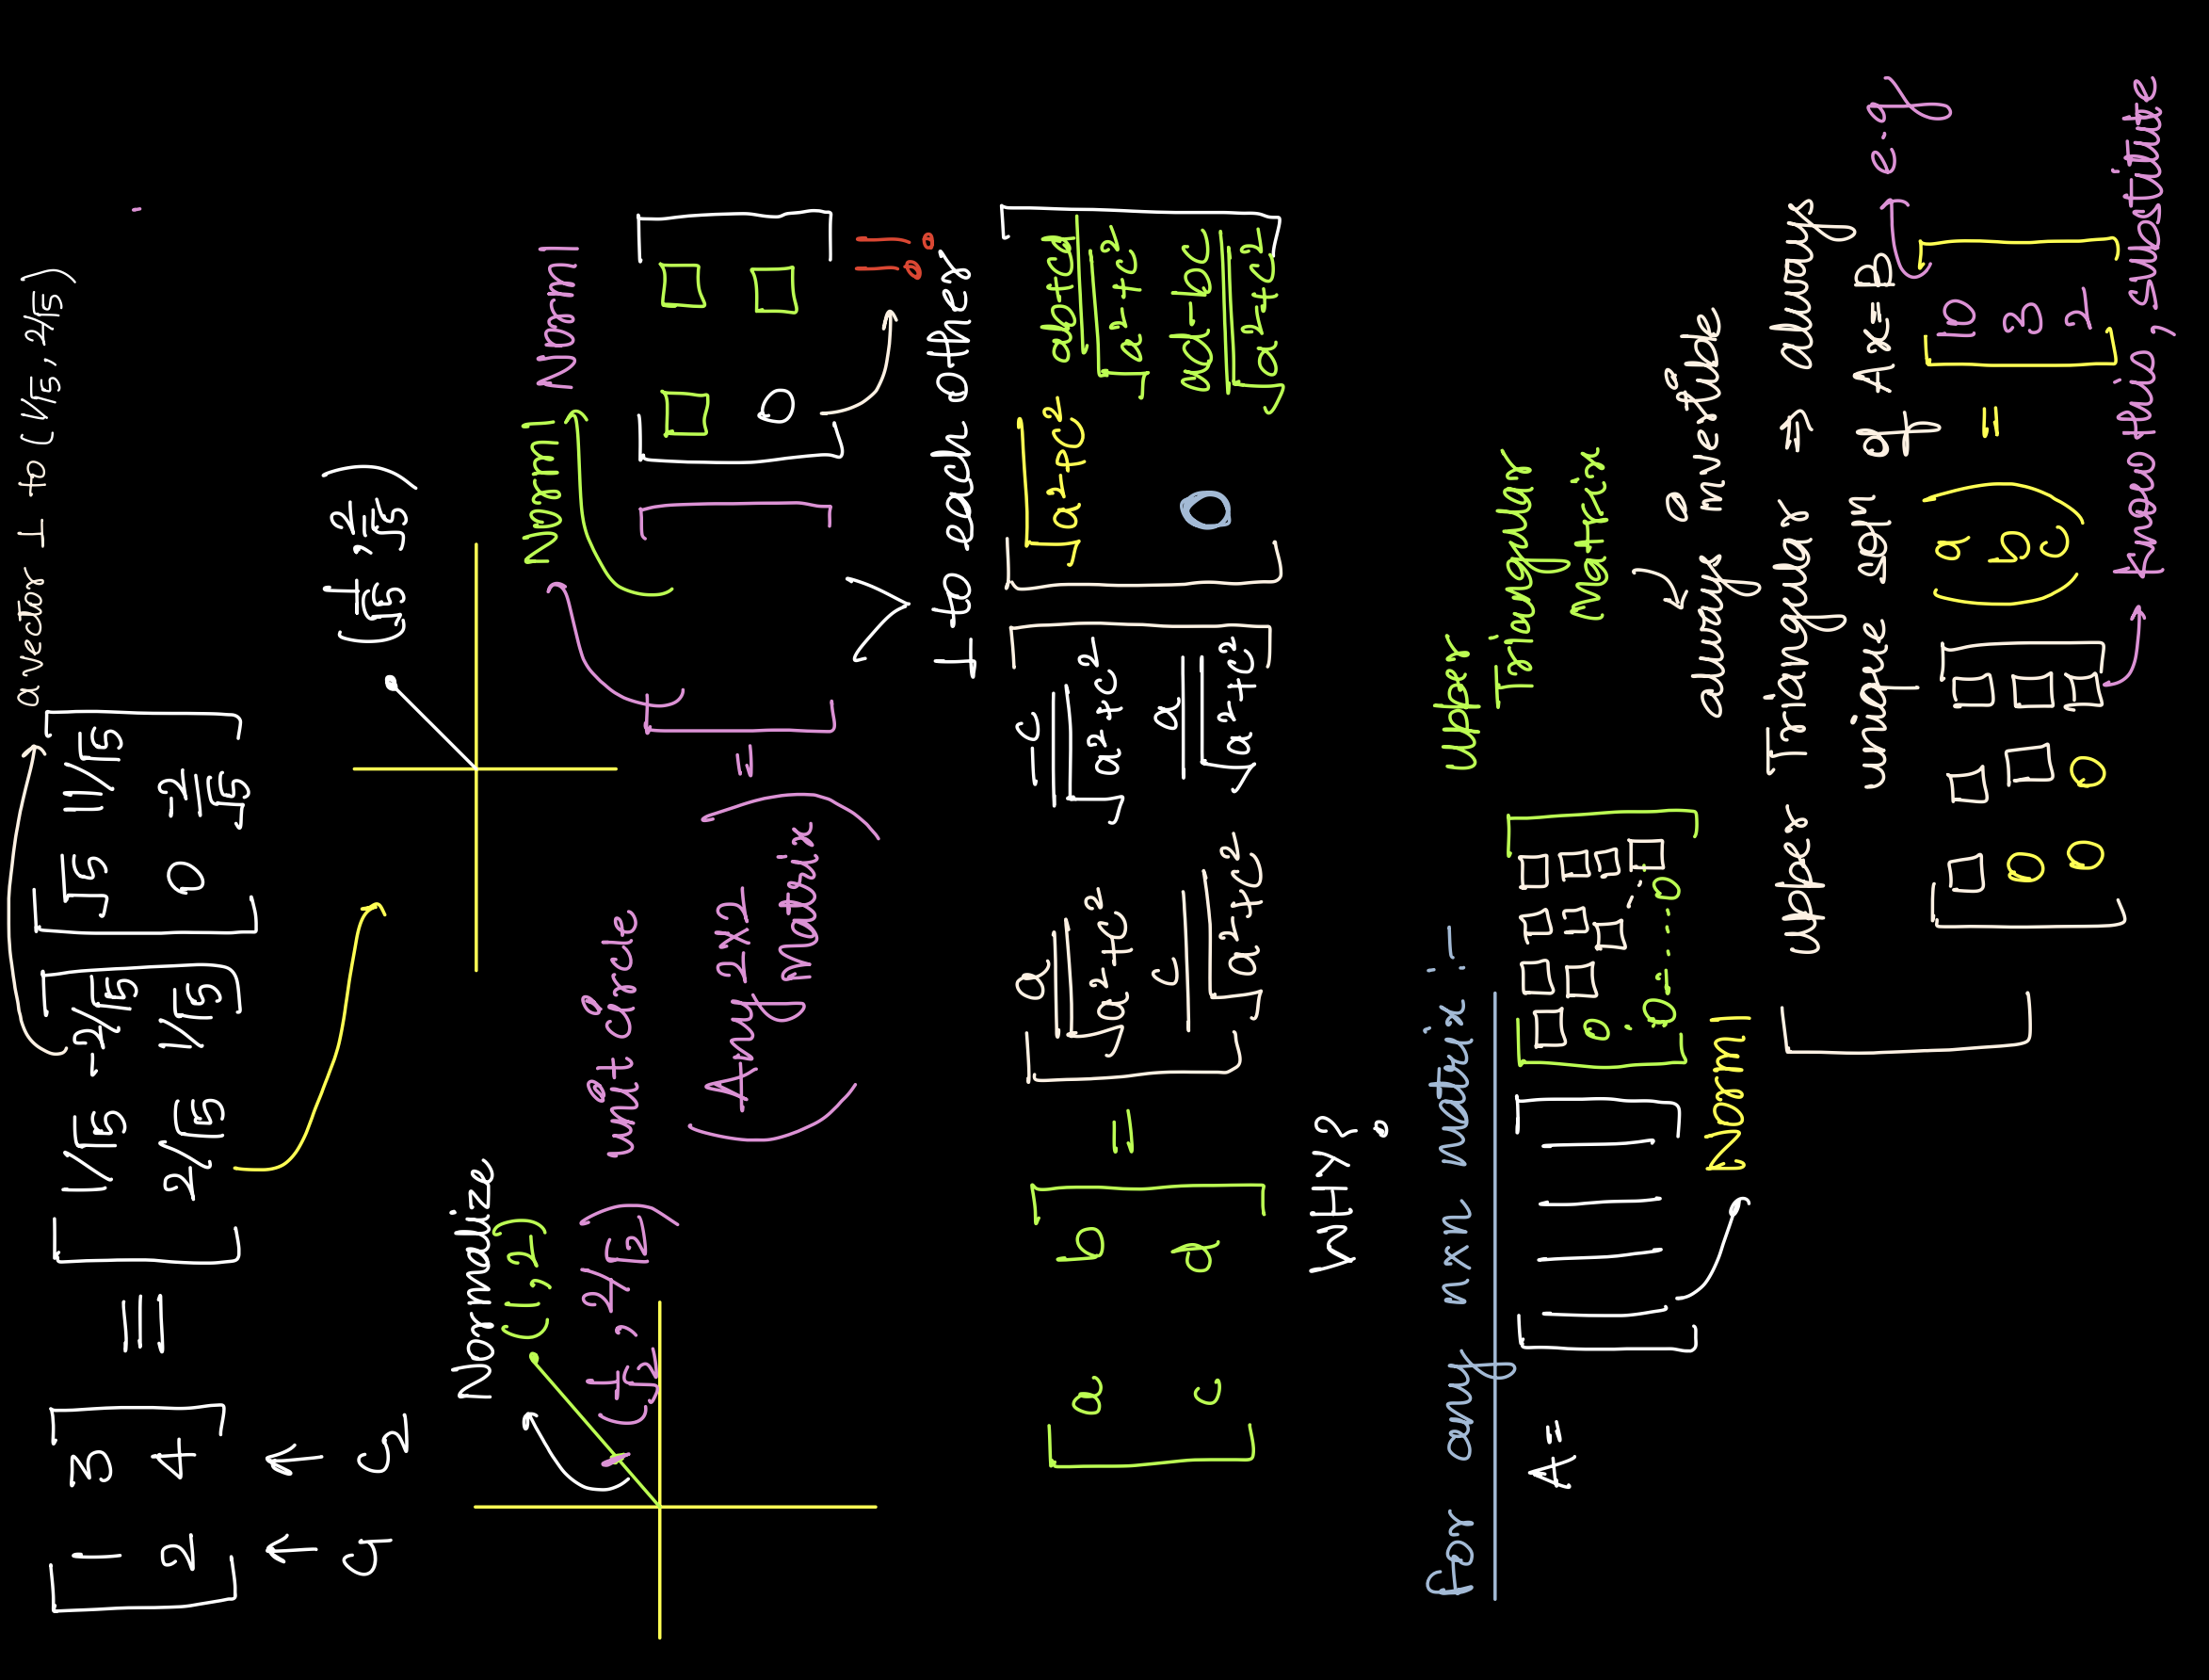 [1 3; 2 4] = [1/√5 -2/√5; 2/√5 1/√5] [√5 11/√5; 0 -2/√5]
a vector ⊥ to (1/√5, 2/√5)
↑ ↑
C1 C2
(1/√5, 2/√5)
Normalize
(1,2)
(1/√2, 2/√2)
unit circle
(Any 2x2
Matrix) = [ ] [□ □; 0 □]
Norm 1 Norm 1
!!
⊥ to each other
[a b; c d] = [a/√a²+c² c/√a²+c²; c/√a²+c² a/√a²+c²] [√a²+c² ab+cd/√a²+c²; 0 ad-bc/√a²+c²]
WHY?
for any nxn matrix :-
A = [ | | | | ] [□ □ □ □; 0 □ □ □; □ □; 0-....0 □]
Norm 1
Upper
Triangular
Matrix
always invertible
[ Upper Triangular ⇒ always
unique soln of Ax=B
[□ □ □; 0 □ □; 0 0 □] (a b c) = [10 3 2]
e.g
Know this, substitute